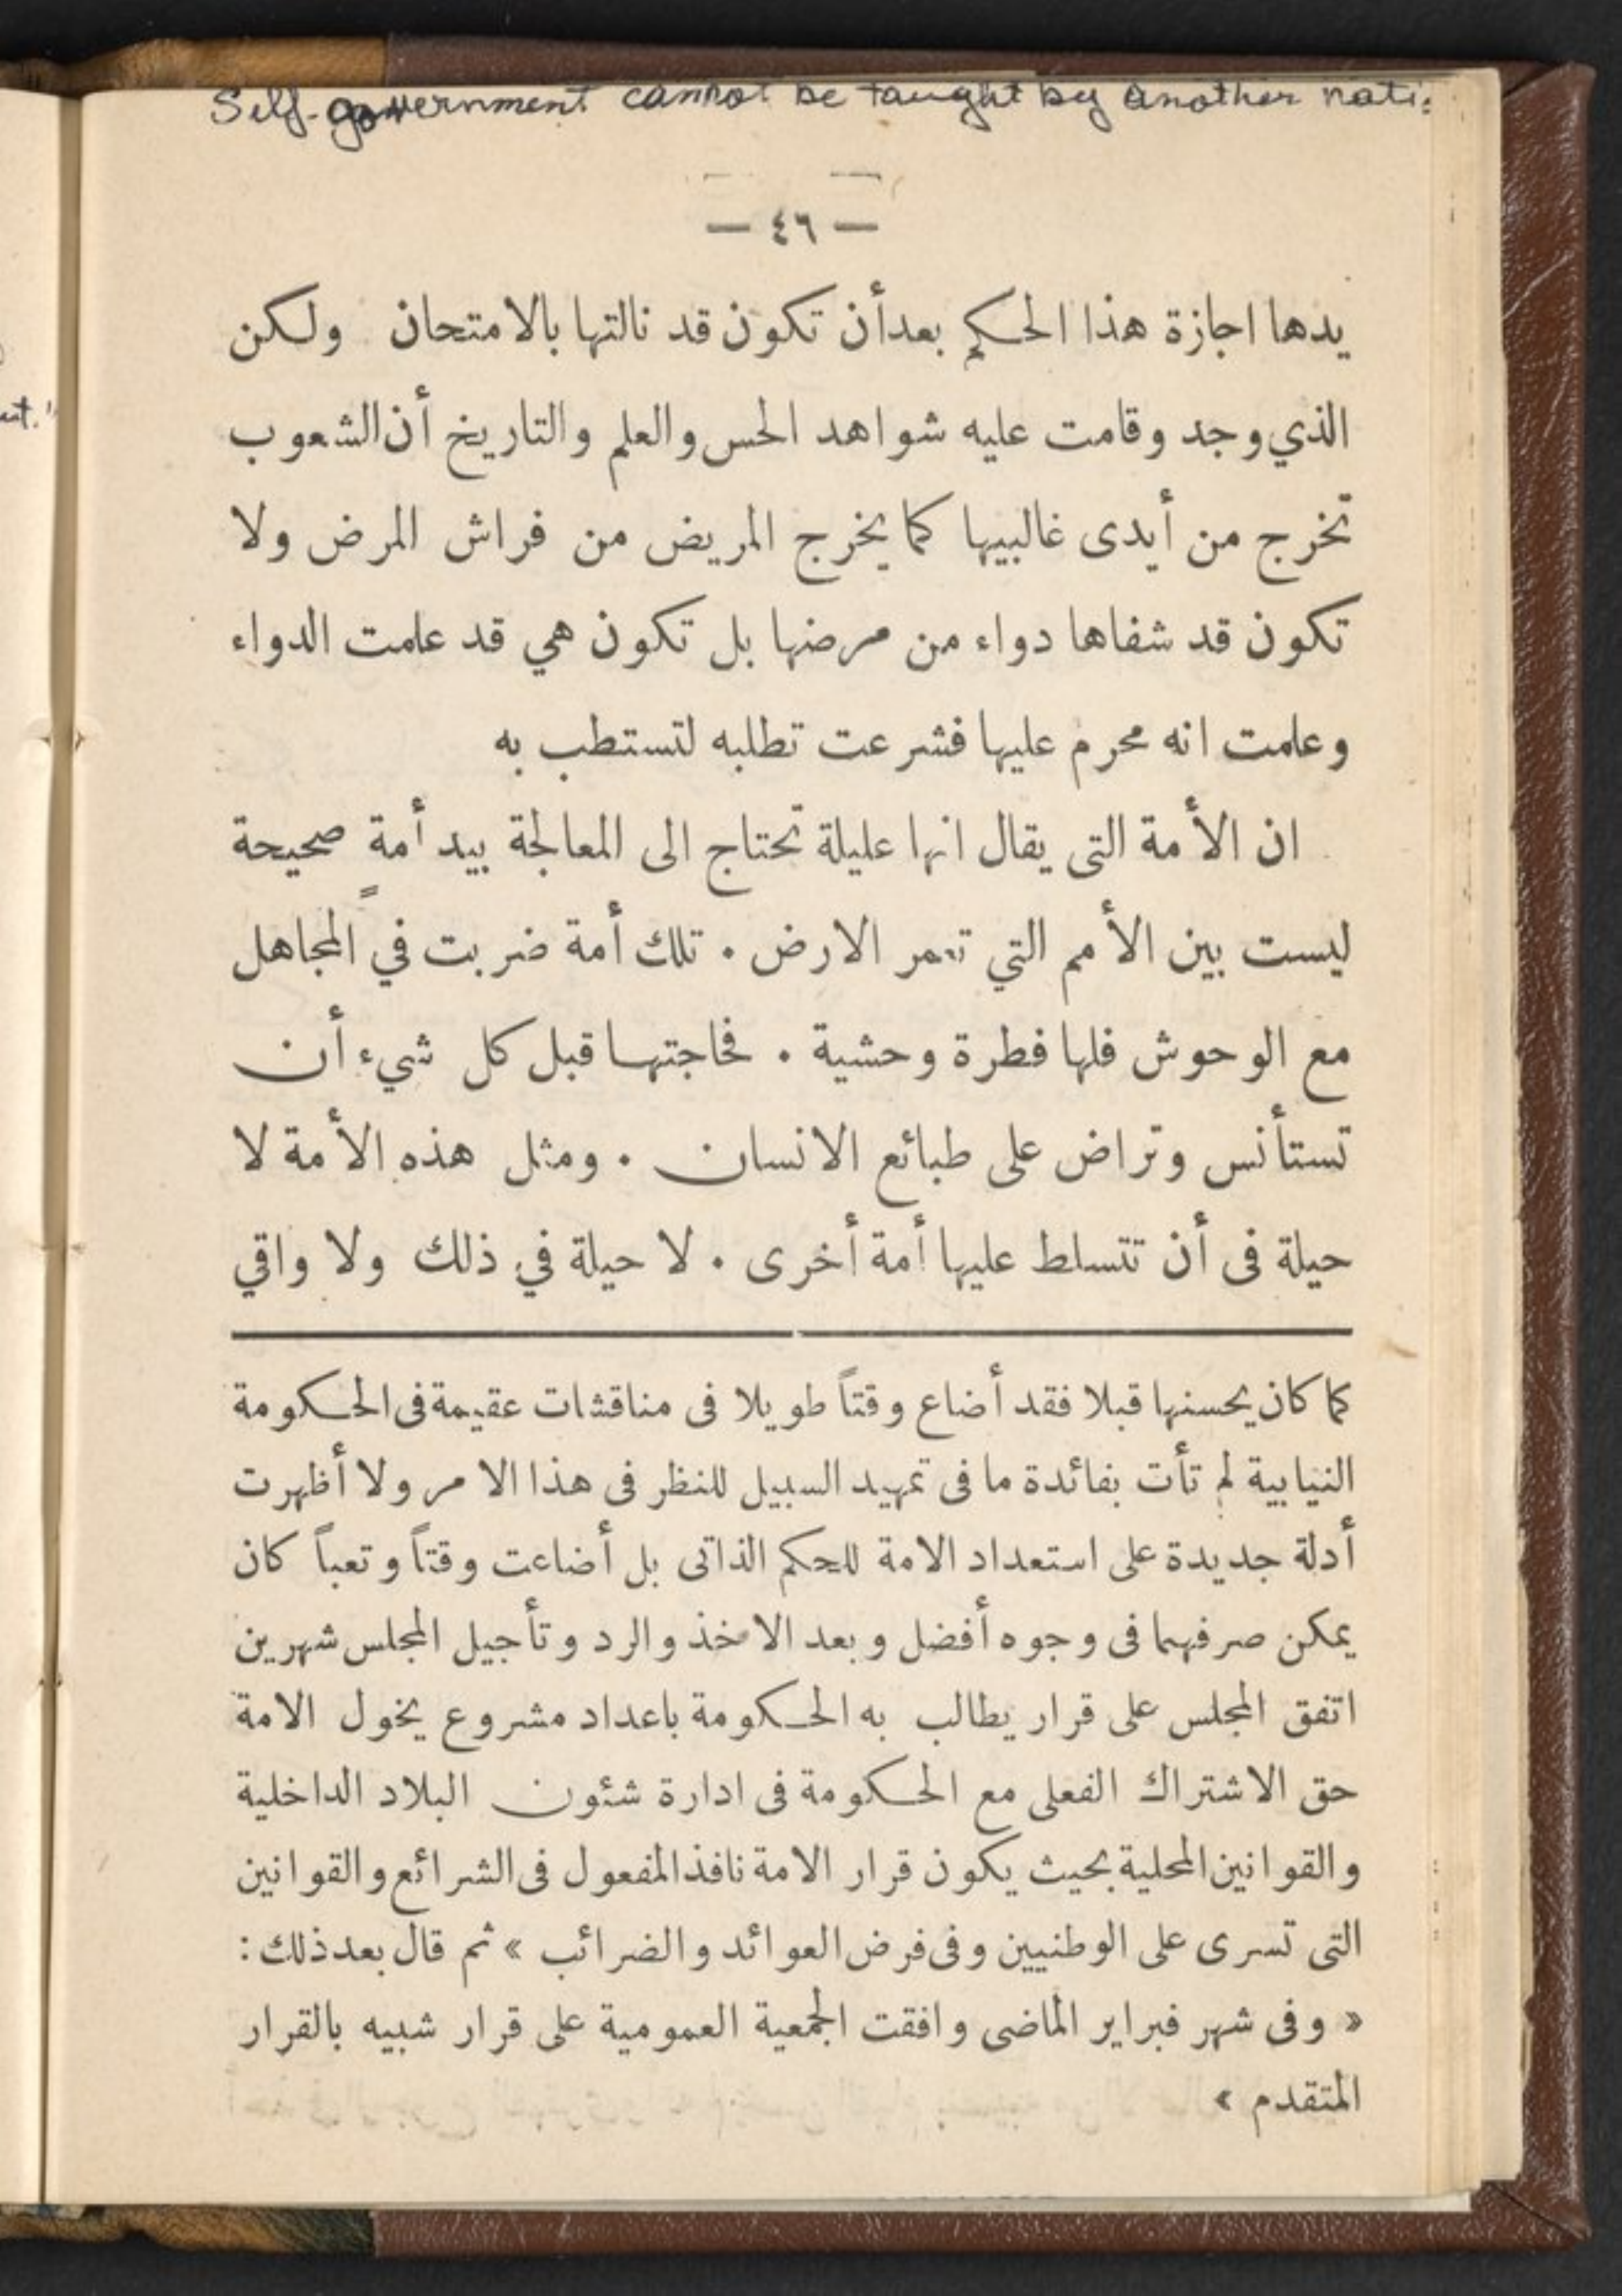 Self-government cannot be taught by another nati
— ٤٦ —
يدها اجازة هذا الحكم بعد أن تكون قد نالتها بالامتحان ولكن
الذي وجد وقامت عليه شواهد الحس والعلم والتاريخ أن الشعوب
تخرج من أيدى غالبيها كما يخرج المريض من فراش المرض ولا
تكون قد شفاها دواء من مرضها بل تكون هي قد علمت الدواء
وعلمت انه محرم عليها فشرعت تطلبه لتستطب به
ان الأمة التى يقال انها عليلة تحتاج الى المعالجة بيد أمة صحيحة
ليست بين الأمم التي تعمر الارض . تلك أمة ضربت في المجاهل
مع الوحوش فلها فطرة وحشية . فحاجتها قبل كل شيء أن
تستأنس وتراض على طبائع الانسان . ومثل هذه الأمة لا
حيلة فى أن تتسلط عليها أمة أخرى . لا حيلة في ذلك ولا واقي
كما كان يحسنها قبلا فقد أضاع وقتاً طويلا فى مناقشات عقيمة فى الحكومة
النيابية لم تأت بفائدة ما فى تمهيد السبيل للنظر فى هذا الامر ولا أظهرت
أدلة جديدة على استعداد الامة للحكم الذاتى بل أضاعت وقتاً وتعباً كان
يمكن صرفهما فى وجوه أفضل وبعد الاخذ والرد وتأجيل المجلس شهرين
اتفق المجلس على قرار يطالب به الحكومة باعداد مشروع يخول الامة
حق الاشتراك الفعلى مع الحكومة فى ادارة شئون البلاد الداخلية
والقوانين المحلية بحيث يكون قرار الامة نافذ المفعول فى الشرائع والقوانين
التى تسرى على الوطنيين وفى فرض العوائد والضرائب » ثم قال بعد ذلك :
« وفى شهر فبراير الماضى وافقت الجمعية العمومية على قرار شبيه بالقرار
المتقدم »